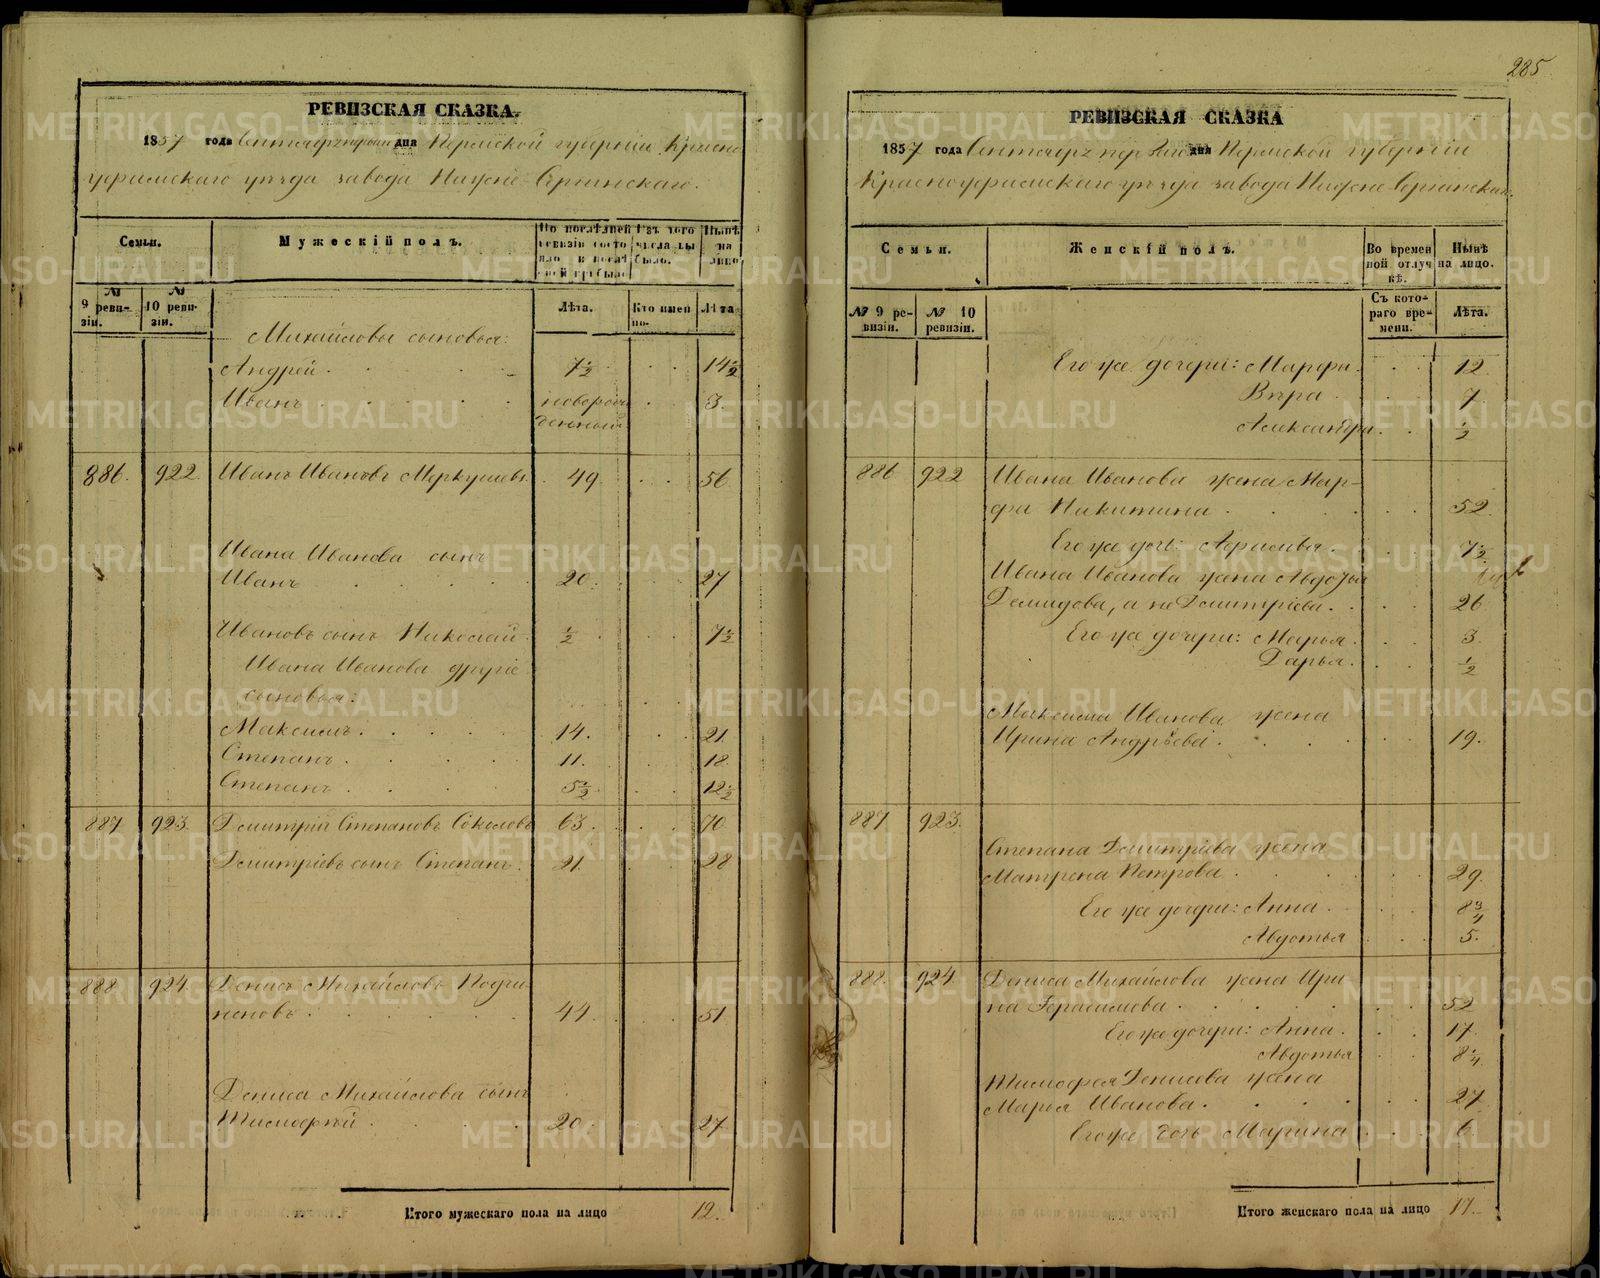 285
РЕВИЗСКАЯ СКАЗКА
1857 года Сентября перваго дня Пермской губернiи Красно-
уфимскаго уѣзда завода Нижне-Сергинскаго.
Семьи.
Мужескiй полъ.
По послѣдней ревизiи состояло и послѣ оной прибыло
Изъ того числа выбыло.
Нынѣ на лицо
№ 9 ревизiи.
№ 10 ревизiи.
Лѣта.
Кто именно.
Лѣта
Михайловы сыновья:
Андрей 7½ 14½
Иванъ новорожденный 3.
886. 922. Иванъ Ивановъ Меркушевъ 49 56
Ивана Иванова сынъ
Иванъ 20 27
Ивановъ сынъ Николай ½ 7½
Ивана Иванова другiе
сыновья:
Максимъ 14. 21
Степанъ 11. 18
Степанъ 5½ 12½
887 923. Дмитрiй Степановъ Соколовъ 63. 70
Дмитрiевъ сынъ Степанъ 21. 28
888 924. Денисъ Михайловъ
44. 51
Дениса Михайлова сынъ
Тимофей 20. 27
Итого мужескаго пола на лицо 12.
РЕВИЗСКАЯ СКАЗКА
1857 года Сентября перваго дня Пермской губернiи
Красноуфимскаго уѣзда завода Нижне Сергинскаго
Семьи.
Женскiй полъ.
Во временной отлучкѣ.
Нынѣ на лицо.
№ 9 ревизiи.
№ 10 ревизiи.
Съ котораго времени.
Лѣта.
Его же дочери: Марфа 12
Вѣра 7
Александра ½
886 922 Ивана Иванова жена Мар-
фа Никитина 52
Его же дочь 7½
Ивана Иванова жена Авдотья
Демидова, а не Дмитрiева. 26
Его же дочери: Марья 3.
Дарья. ½
Максима Иванова жена
Ирина Андрѣева 19.
887 923.
Степана Дмитрiева жена
Матрена Петрова 29.
Его же дочери: Анна 8¾
Авдотья 5.
888. 924 Дениса Михайлова жена Ири-
на Герасимова 52
Его же дочери: Анна 17.
Авдотья 8¼
Тимофея Денисова жена
Марья Иванова. 27
Его же дочь Марина 6.
Итого женскаго пола на лицо 17.
METRIKI.GASO-URAL.RU